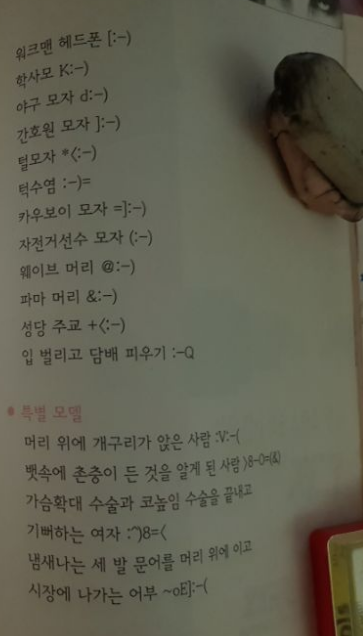 워크맨 헤드폰 [:-)
학사모 K:-)
야구 모자 d:-)
간호원 모자 ]:-)
털모자 *<:-)
턱수염 :-)=
카우보이 모자 =]:-)
자전거선수 모자 (:-)
웨이브 머리 @:-)
파마 머리 &:-)
성당 주교 +<:-)
입 벌리고 담배 피우기 :-Q
• 특별 모델
머리 위에 개구리가 앉은 사람 :V:-(
뱃속에 촌충이 든 것을 알게 된 사람 )8-O=(&)
가슴확대 수술과 코높임 수술을 끝내고
기뻐하는 여자 :^)8=<
냄새나는 세 발 문어를 머리 위에 이고
시장에 나가는 어부 ~oE]:-(